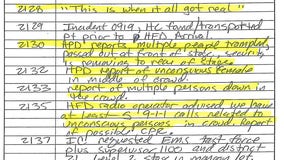 2128 "This is when it all got real"
2129 Incident 0919, HC found/transported
Pt prior to HFD Arrival.
2130 HPD reports multiple people trampled,
passed out at front of stage, security
is removing to rear of stage.
2132 HFD report of unconscious female
in middle of crowd.
2133 report of multiple persons down in
the crowd.
2135 HFD radio operator advised we have
at least 5 911 calls related to
unconscious persons in crowd. Report
of possible CPR.
2137 IC requested EMS task force
plus supervisor
stage